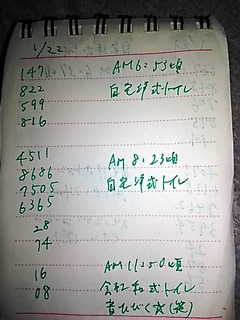 1/22
147 AM6:53頃
822 自宅洋式トイレ
599
816
4511 AM8:23頃
8686 自宅洋式トイレ
7505
6365
28
74
16 AM11:50頃
08 会社和式トイレ